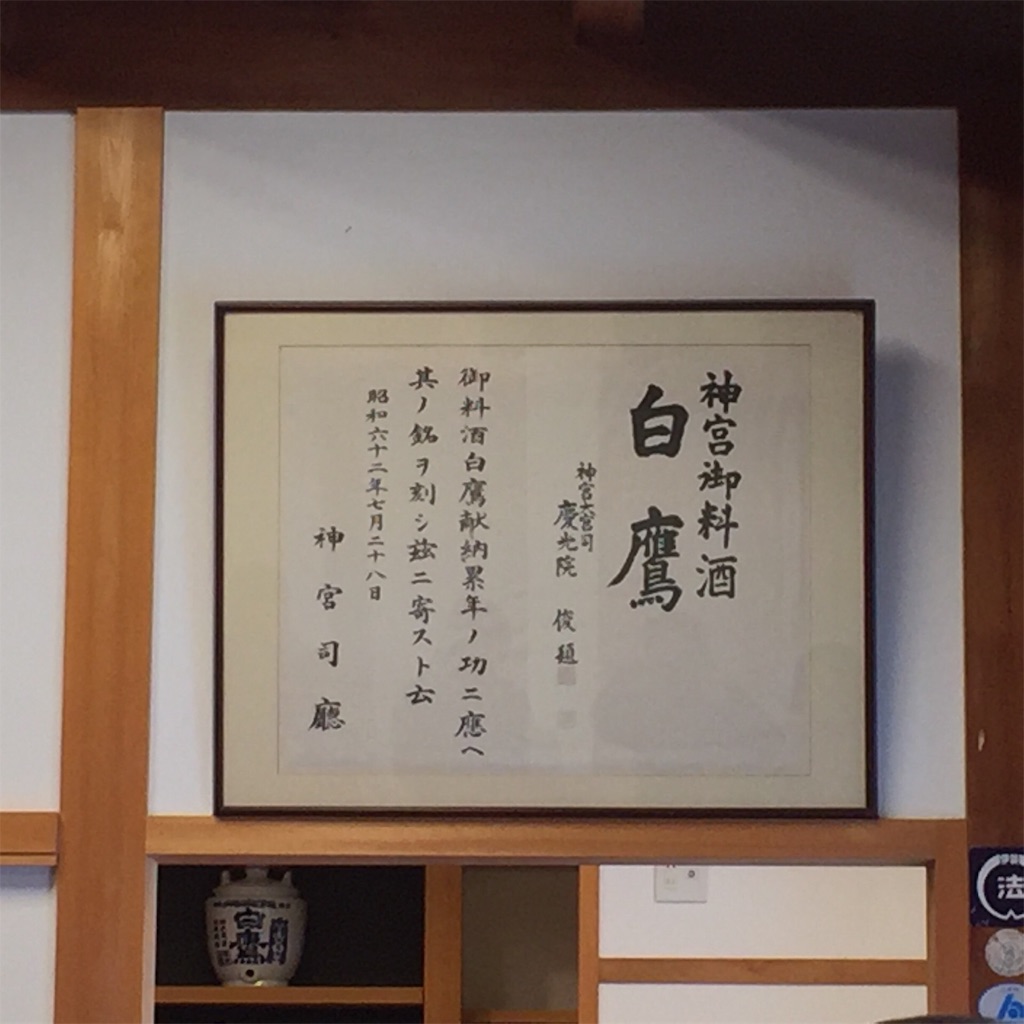 神宮御料酒
白鷹
神宮大宮司
慶光院 俊 題
御料酒白鷹献納累年ノ功ニ應ヘ
其ノ銘ヲ刻シ茲ニ寄スト云
昭和六十二年七月二十八日
神宮司廳
白鷹
法